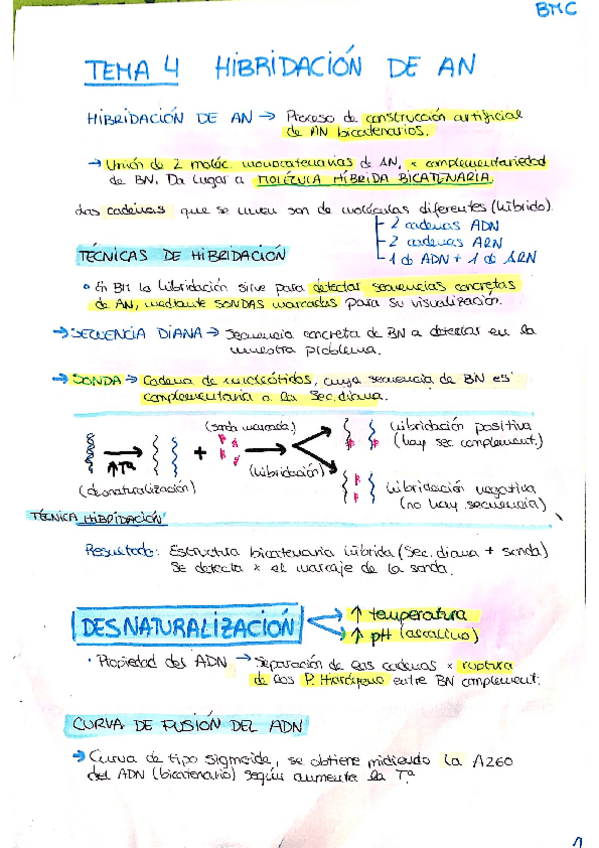 BMC
TEMA 4 HIBRIDACIÓN DE AN
HIBRIDACIÓN DE AN → Proceso de construcción artificial
de AN bicatenarios.
→ Unión de 2 moléc. monocatenarias de AN, x complementariedad
de BN. Da lugar a MOLÉCULA HÍBRIDA BICATENARIA.
Las cadenas que se unen son de moléculas diferentes (híbrido).
2 cadenas ADN
2 cadenas ARN
1 de ADN + 1 de ARN
TÉCNICAS DE HIBRIDACIÓN
• En BM la hibridación sirve para detectar secuencias concretas
de AN, mediante SONDAS marcadas para su visualización.
→ SECUENCIA DIANA → Secuencia concreta de BN a detectar en la
muestra problema.
→ SONDA → Cadena de nucleótidos, cuya secuencia de BN es
complementaria a la sec. diana.
(sonda marcada)
↑Tª
+
(desnaturalización)
(hibridación)
hibridación positiva
(hay sec complement.)
hibridación negativa
(no hay secuencia)
TÉCNICA HIBRIDACIÓN
Resultado: Estructura bicatenaria híbrida (sec. diana + sonda)
Se detecta x el marcaje de la sonda.
DESNATURALIZACIÓN
↑ temperatura
↑ pH (alcalino)
• Propiedad del ADN → Separación de las cadenas x ruptura
de los P. Hidrógeno entre BN complement.
CURVA DE FUSIÓN DEL ADN
→ Curva de tipo sigmoide, se obtiene midiendo la A260
del ADN (bicatenario) según aumenta la Tª
1